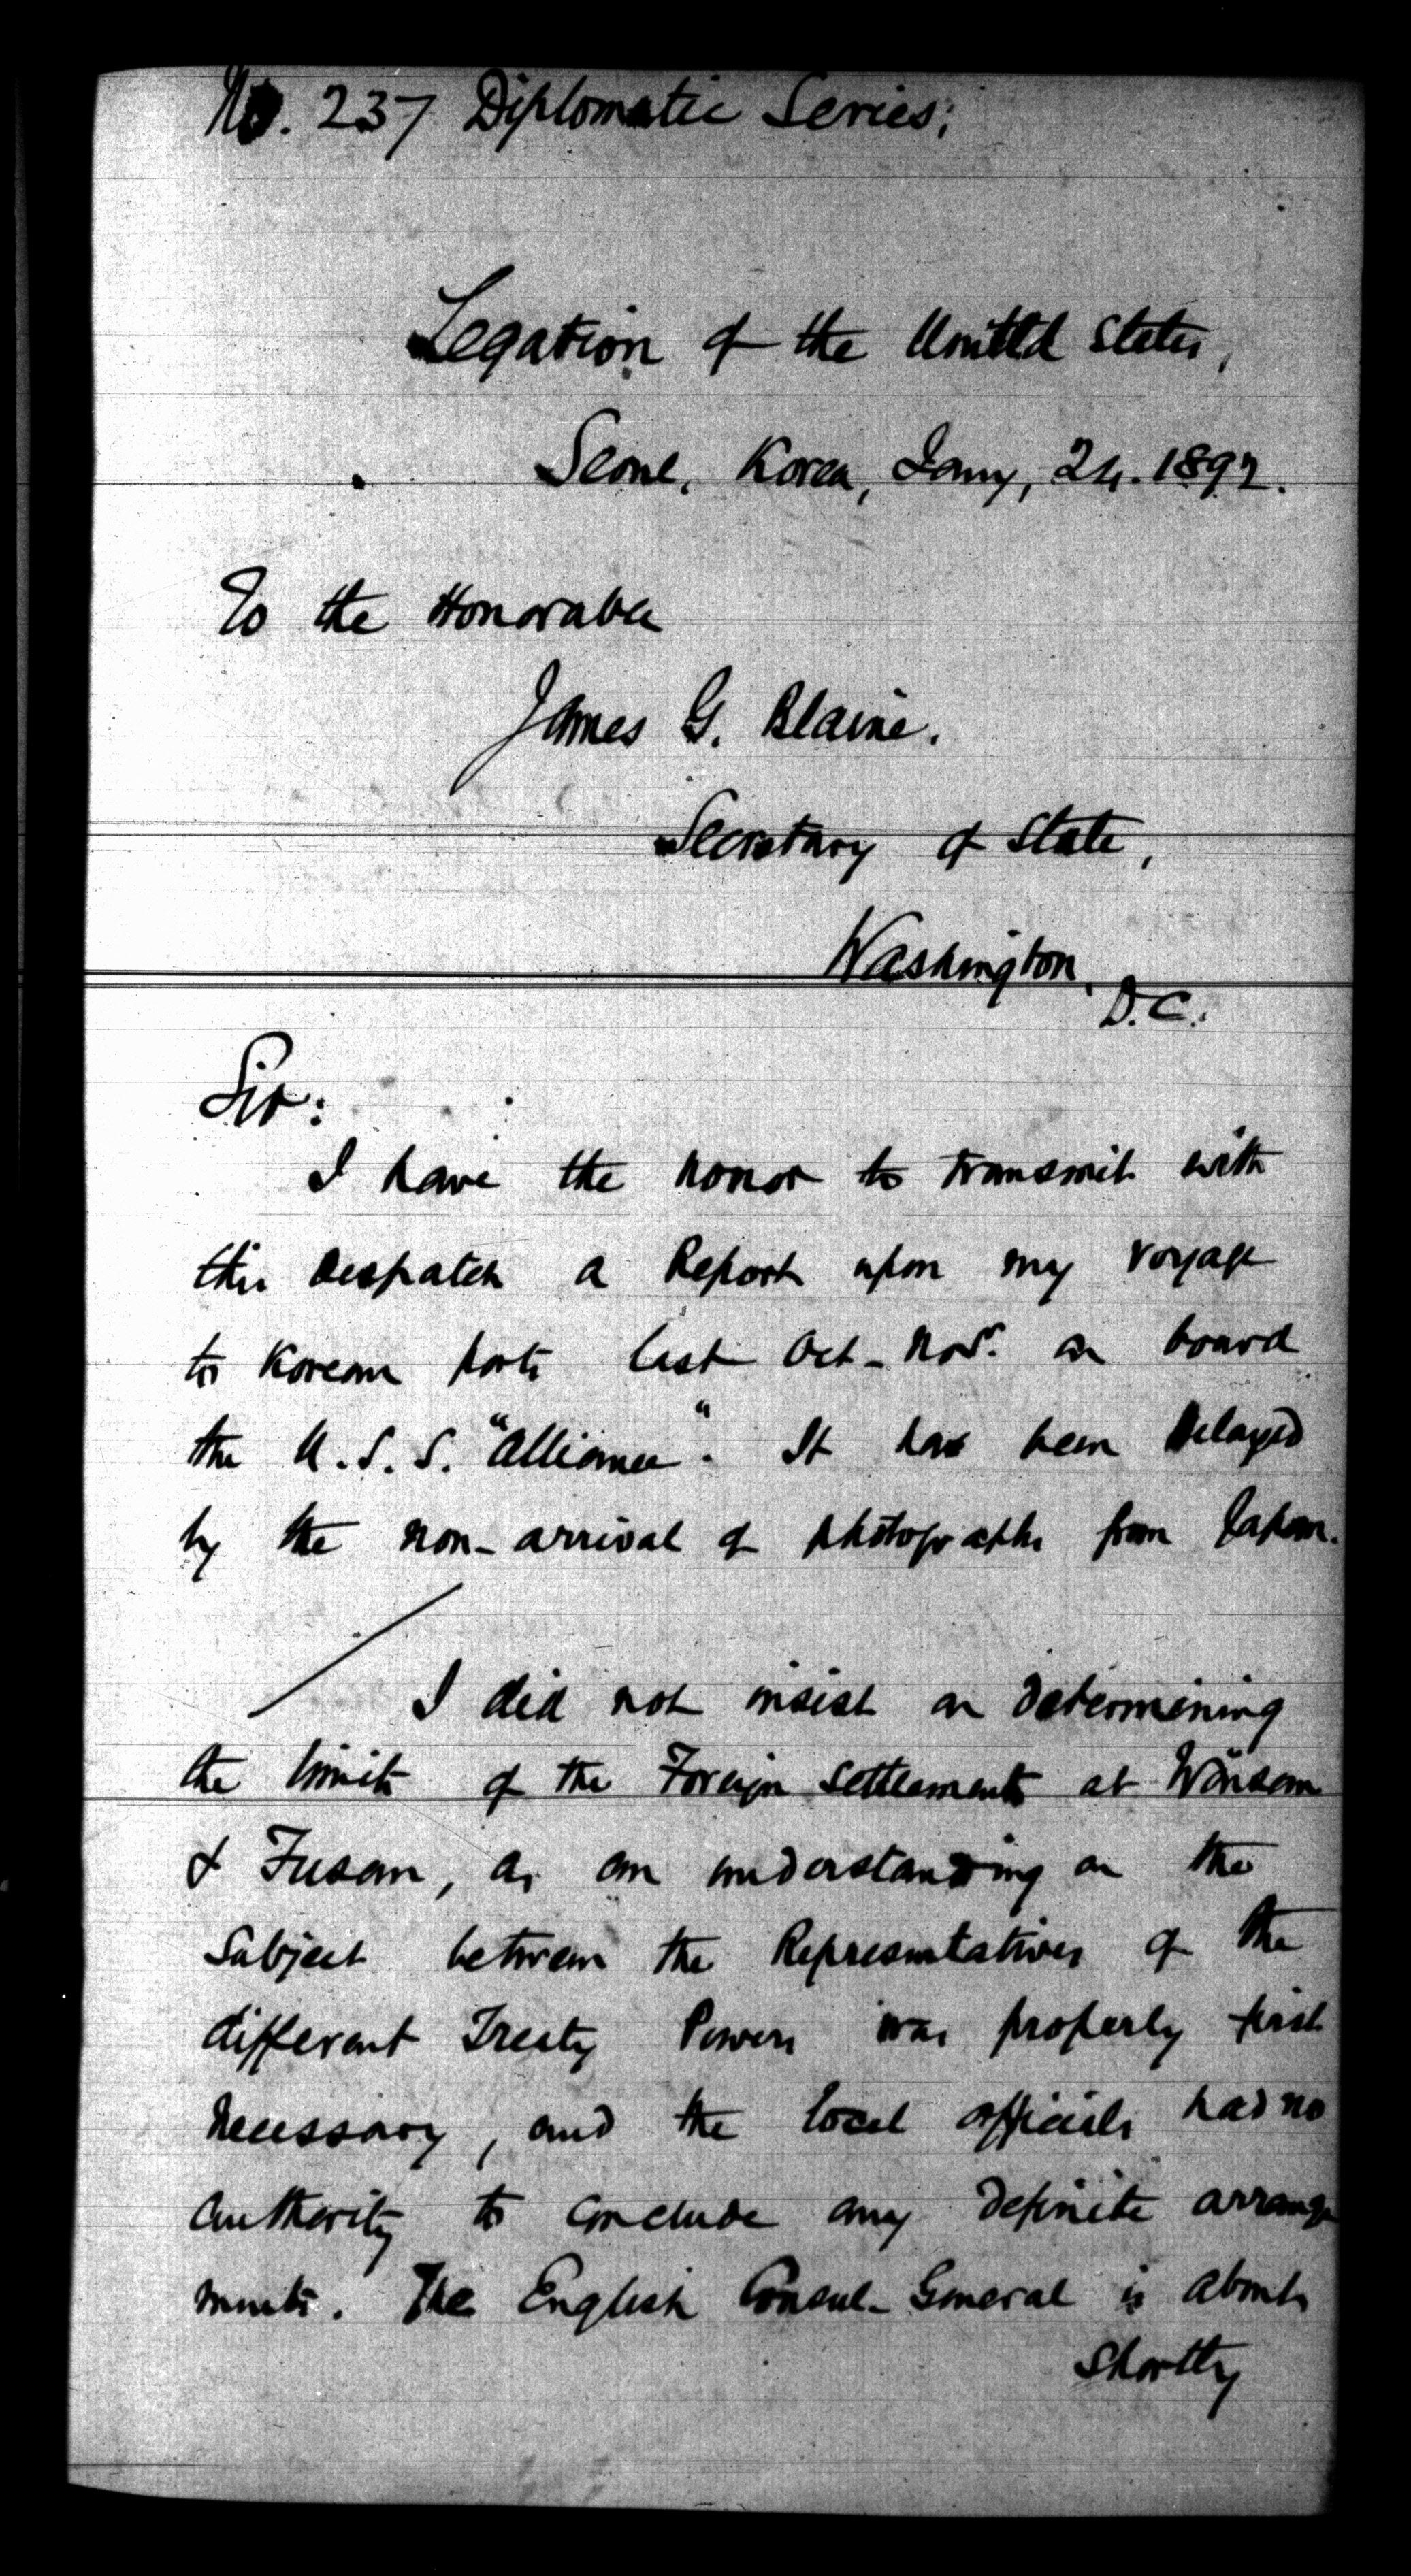 No. 237 Diplomatic Series;
Legation of the United States,
Seoul, Korea, Jany, 24. 1892.
To the Honorable
James G. Blaine.
Secretary of State,
Washington,
D.C.
Sir:
I have the honor to transmit with
this despatch a Report upon my voyage
to Korean ports last Oct-Novr. on board
the U.S.S. "Alliance". It has been delayed
by the non-arrival of photographs from Japan.
I did not insist on determining
the limits of the Foreign Settlements at Wönsan
& Fusan, as an understanding on the
subject between the Representatives of the
different Treaty Powers was properly first
necessary, and the local officials had no
authority to conclude any definite arrange
ments. The English Consul-General is about
shortly